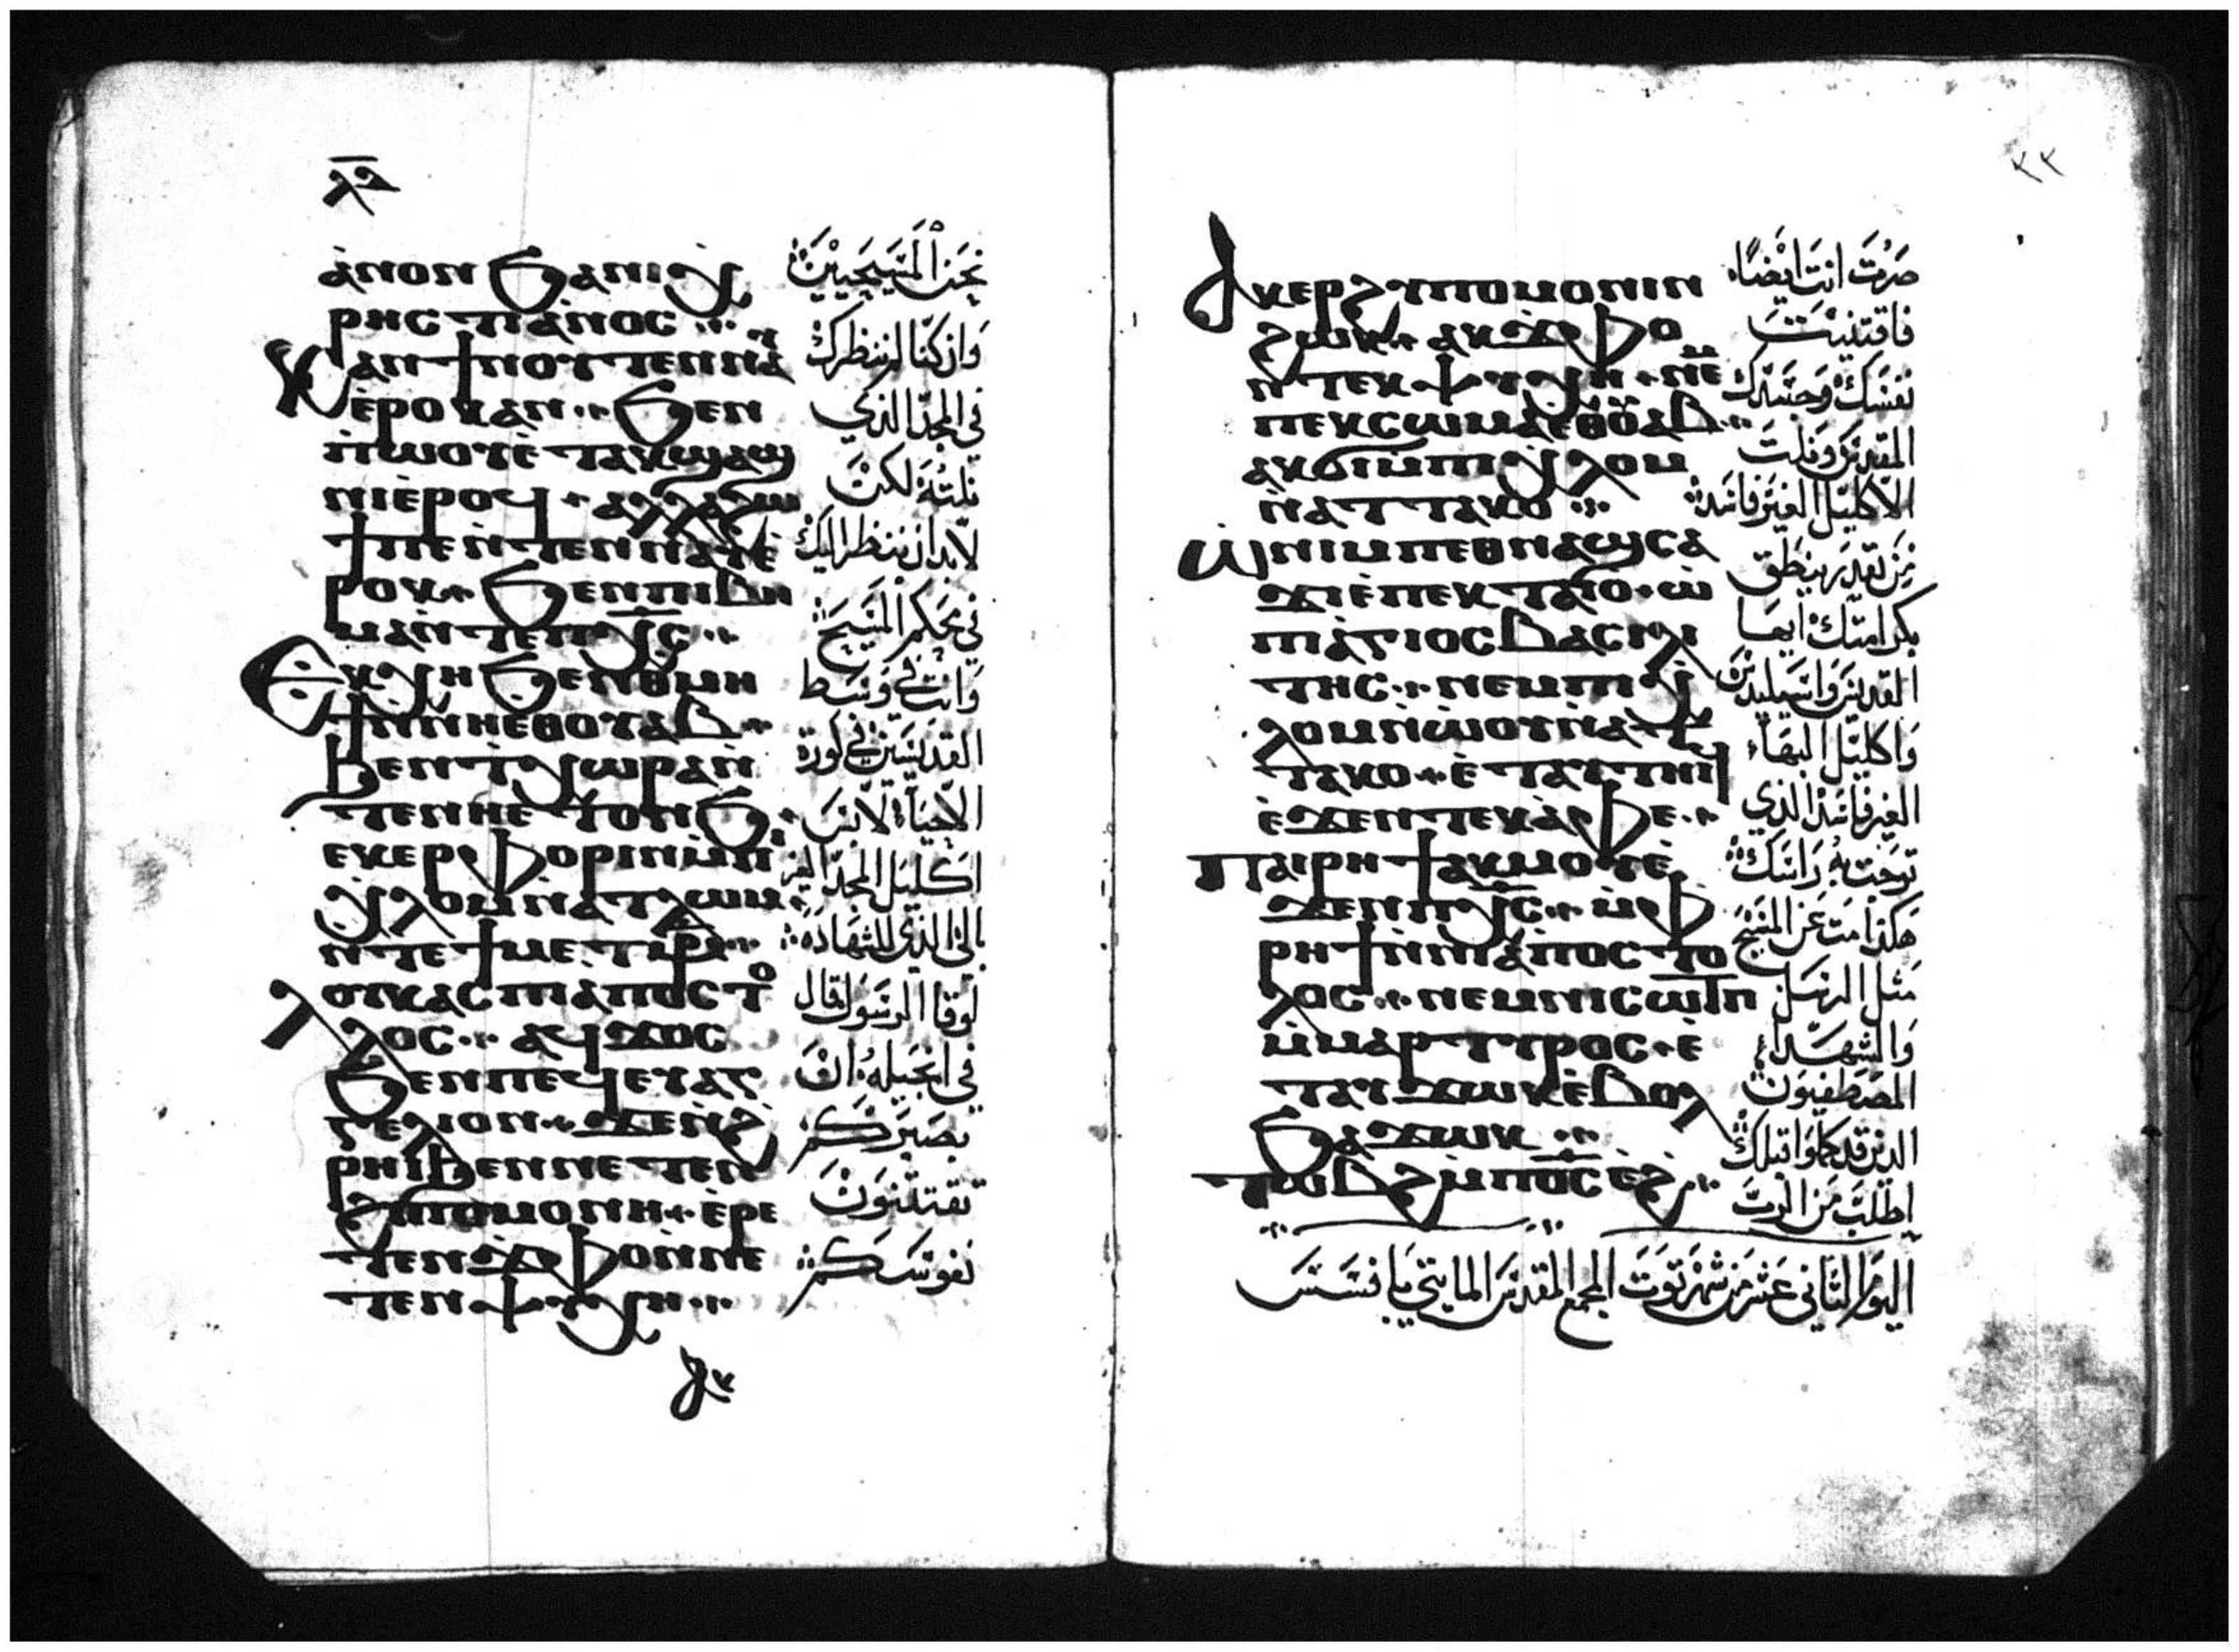 ⲁ̀ⲛⲟⲛ ϧⲁⲛⲓⲭ̀
ⲣⲏⲥⲧⲓⲁ̀ⲛⲟⲥ ⁘
Ⲕⲁⲛ ϯⲛⲟⲩ ⲧⲉⲛⲛⲁⲩ
ⲉ̀ⲣⲟⲕ ⲁⲛ ⁘ ϧⲉⲛ
ⲡ̀ⲱⲟⲩ ⲉ̀ⲧⲁⲕϣⲁϣ
ⲛⲓ ⲉ̀ⲣⲟϥ ⁘ ⲁⲗⲗⲁ ϩⲱ
ϯ ⲡⲉ ⲛ̀ⲧⲉⲛⲛⲁⲩ ⲉ̀
ⲣⲟⲕ ⁘ ϧⲉⲛ ⲡⲓⲃⲏ
ⲙⲁ ⲛ̀ⲧⲉ ⲡⲭ̅ⲥ̅ ⁘
Ⲉⲕⲭⲏ ϧⲉⲛ ⲑⲙⲏ
ϯ ⲛ̀ⲛⲏⲉⲑⲟⲩⲁⲃ ⁘
ϧⲉⲛ ⲧ̀ⲭⲱⲣⲁ ⲛ̀
ⲧⲉ ⲛⲏⲉⲧⲟⲛϧ ⁘
ⲉⲕⲉⲣⲫⲟⲣⲓⲛ ⲙ̀ⲡⲓ
ⲭ̀ⲗⲟⲙ ⲛ̀ⲁⲧⲗⲱⲙ ⁘
ⲛ̀ⲧⲉ ϯⲙⲉⲧ
Ⲗⲟⲩⲕⲁⲥ ⲡⲓⲁ̀ⲡⲟⲥⲧⲟ
ⲗⲟⲥ ⁘ ⲁϥϫⲟⲥ
ϧⲉⲛ ⲡⲉϥⲉⲩⲁⲅ
ⲅⲉⲗⲓⲟⲛ ⁘ ϫⲉ ⲛ̀ϩ̀
ⲣⲏⲓ ϧⲉⲛ ⲛⲉⲧⲉⲛ
ϩⲩⲡⲟⲙⲟⲛⲏ ⁘ ⲉ̀ⲣⲉ
ⲧⲉⲛϫⲫⲟ ⲛ̀ⲛⲉ
ⲧⲉⲛⲯⲩⲭⲏ ⁘
نحن المسيحيين
وان كنا لم ننظرك
في المجد الذي
نلته لكن
لابد ان ننظر اليك
في محكم المسيح
وانت في وسط
القديسين في كورة
الاحياء لابس
اكليل المجد الغير
بالي الذي للشهادة
لوقا الرسول قال
في انجيله ان
بصبركم
تقتنون
نفوسكم
ⲁⲕ
٢٢
Ⲁⲕⲉⲣϩⲩⲡⲟⲙⲟⲛⲓⲛ
ϩⲱⲕ ⁘ ⲁⲕϫⲫⲟ
ⲛ̀ⲧⲉⲕⲯⲩⲭⲏ ⁘ ⲛⲉⲙ
ⲡⲉⲕⲥⲱⲙⲁ ⲉⲑⲟⲩⲁⲃ ⁘
ⲁⲕϭⲓ ⲙ̀ⲡⲓⲭ̀ⲗⲟⲙ
ⲛ̀ⲁⲧⲧⲁⲕⲟ ⁘
Ⲱ ⲛⲓⲙ ⲡⲉⲑⲛⲁϣⲥⲁ
ϫⲓ ⲉ̀ⲡⲉⲕⲧⲁⲓⲟ ⁘ ⲱ̀
ⲡⲓⲁ̀ⲅⲓⲟⲥ ⲃⲁⲥⲓⲗⲓ
ⲧⲏⲥ ⁘ ⲛⲉⲙ ⲡⲓⲭ̀
ⲗⲟⲙ ⲛ̀ⲱⲟⲩ ⲛ̀ⲁⲧ
ⲧⲁⲕⲟ ⁘ ⲉ̀ⲧⲁⲩⲧⲏⲓϥ
ⲉ̀ϫⲉⲛ ⲧⲉⲕⲁ̀ⲫⲉ ⁘
Ⲡⲁⲓⲣⲏϯ ⲁⲕⲙⲟⲩ ⲉ̀
ϫⲉⲛ ⲡⲭ̅ⲥ̅ ⁘ ⲙ̀ⲫ̀
ⲣⲏϯ ⲛ̀ⲛⲓⲁ̀ⲡⲟⲥⲧⲟ
ⲗⲟⲥ ⁘ ⲛⲉⲙ ⲛⲓⲥⲱⲧⲡ
ⲙ̀ⲙⲁⲣⲧⲩⲣⲟⲥ ⁘ ⲉ̀
ⲧⲁⲩϫⲱⲕ ⲉ̀ⲃⲟⲗ
ϧⲁϫⲱⲕ ⁘
Ⲧⲱⲃϩ ⲙ̀ⲡⲟ̅ⲥ̅ ⲉ̀ϩ ⁘
صرت انت ايضا
فاقتنيت
نفسك وجسدك
المقدس ونلت
الاكليل الغير فاسد
من يقدر ينطق
بكرامتك ايها
القديس واسيليدس
واكليل البهاء
الغير فاسد الذي
توجت به راسك
هكذا مت عن المسيح
مثل الرسل
والشهداء
المصطفيون
الذين قد كملوا قبلك
اطلب من الرب
اليوم الثاني عشر من شهر توت المجمع المقدس المايتي بافسس